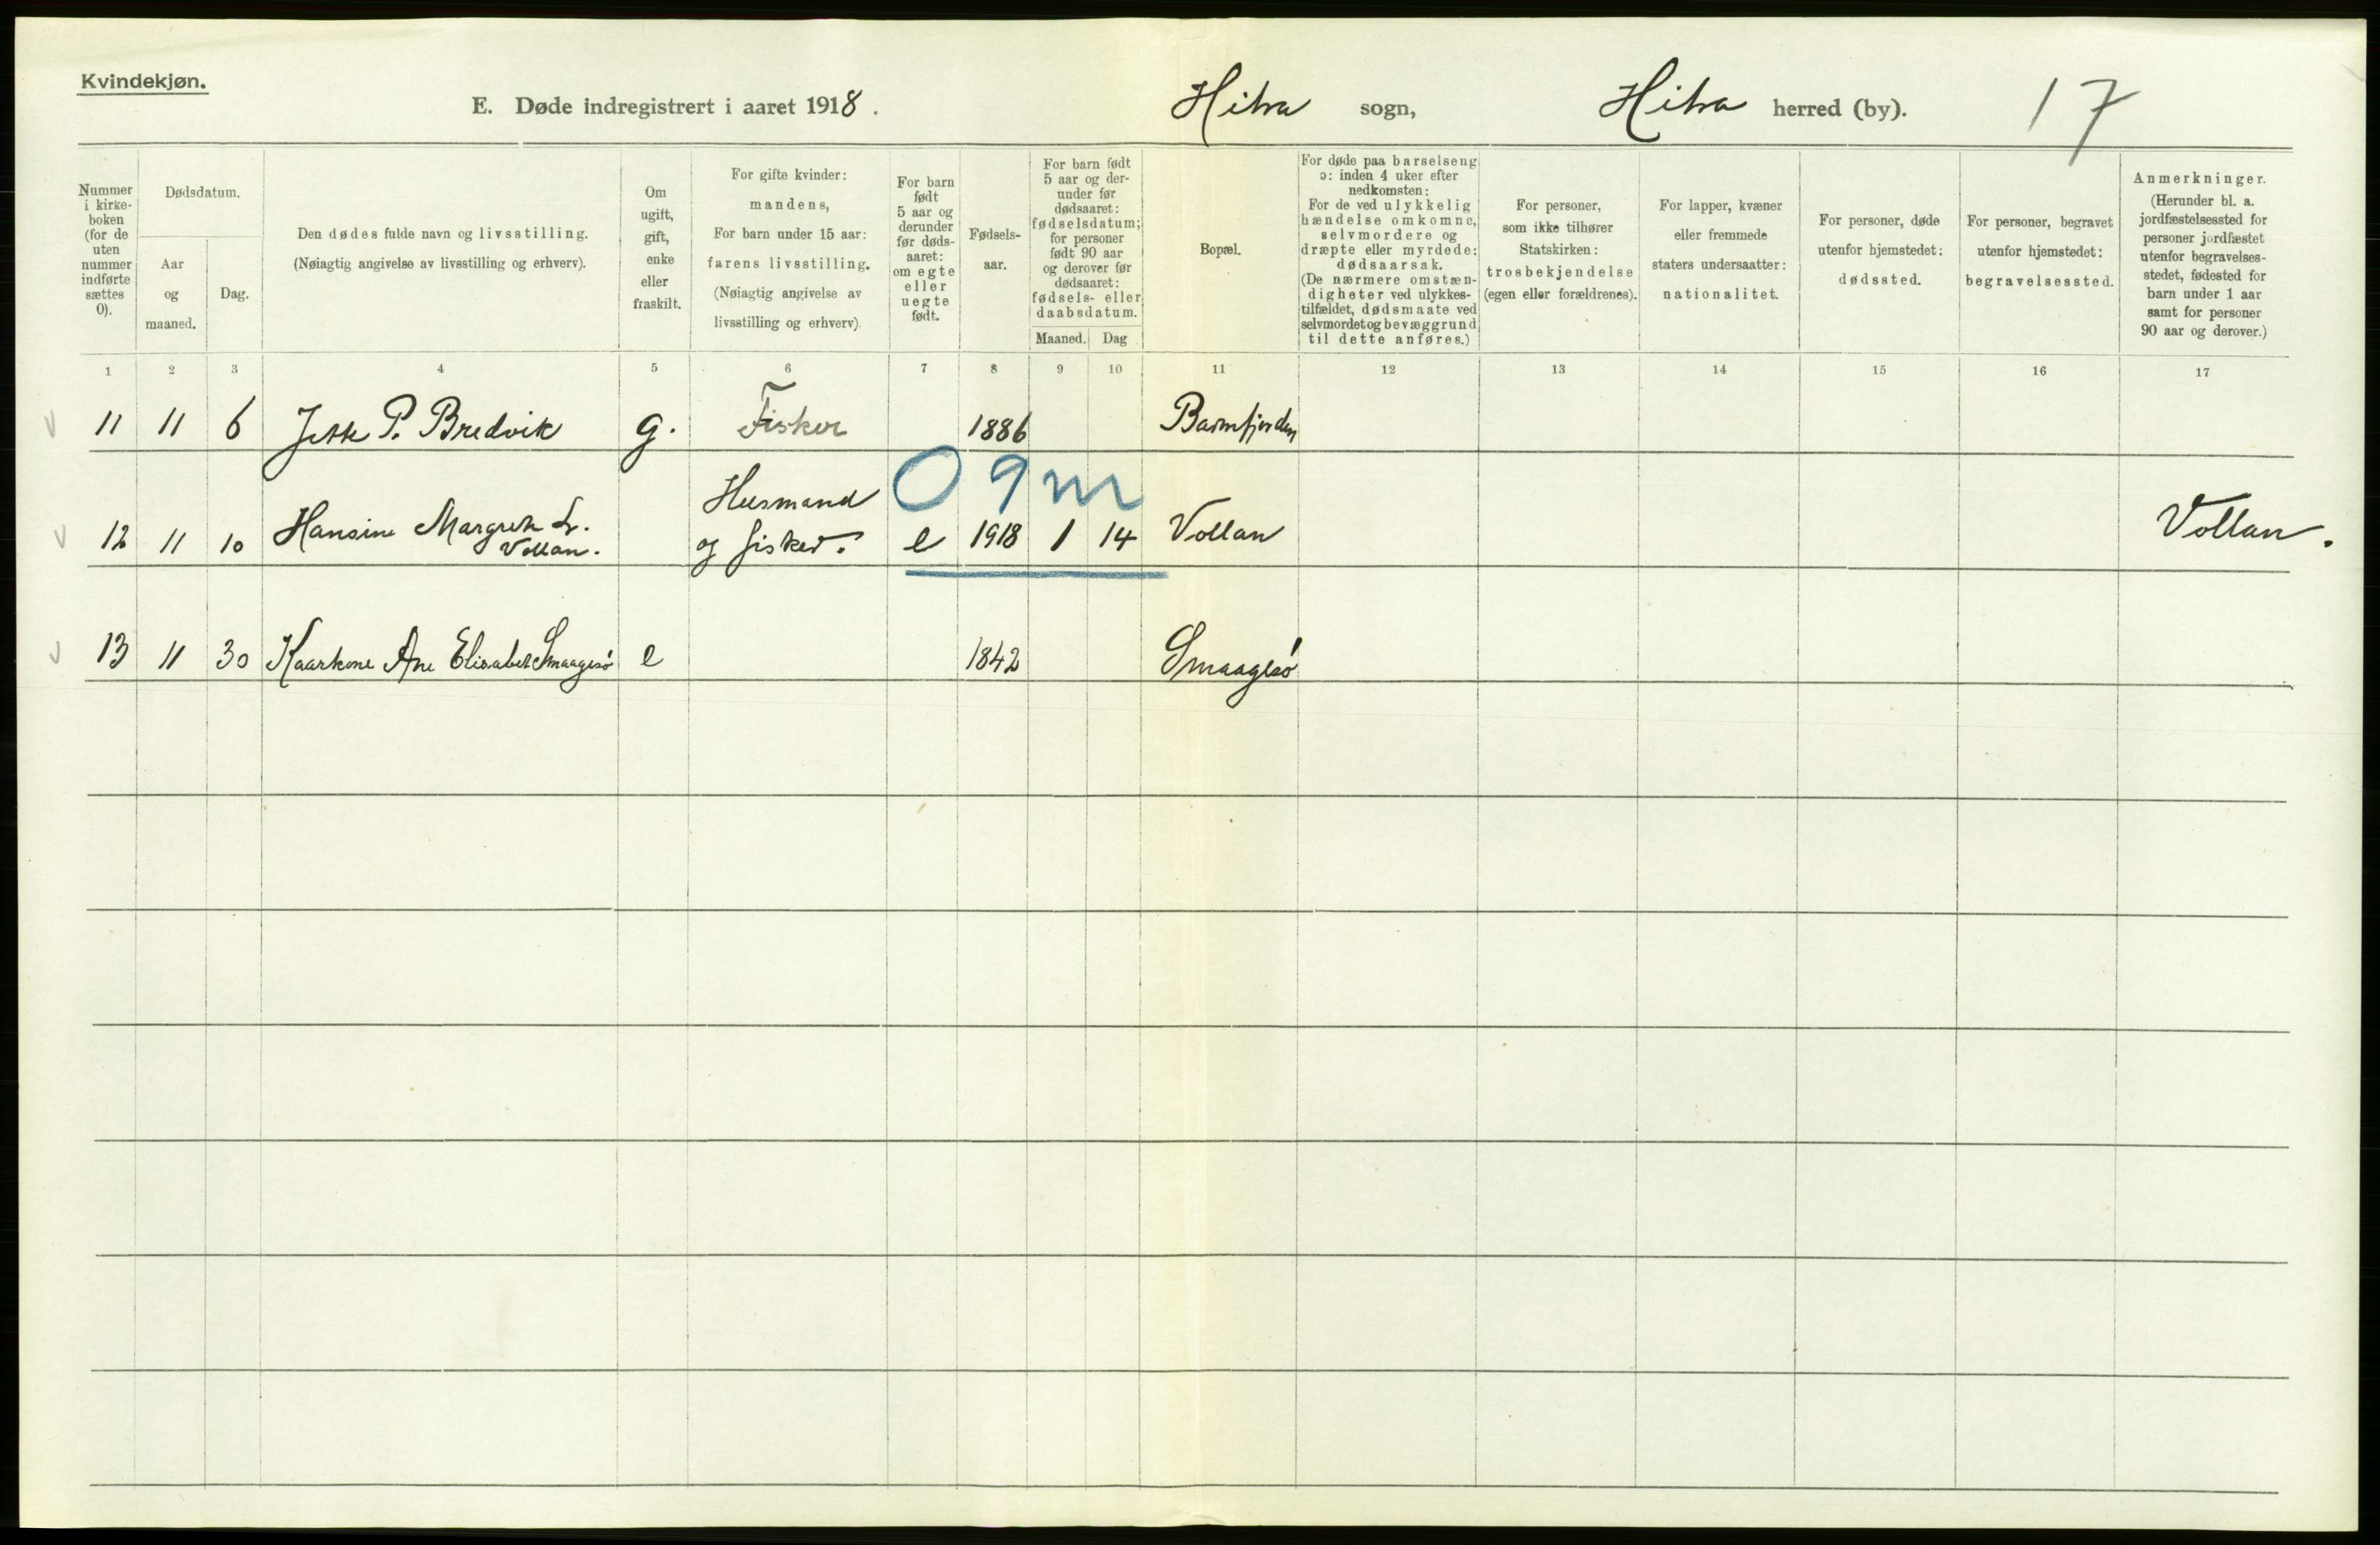 Kvindekjøn.
E. Døde indregistrert i aaret 1918.
Hitra sogn,
Hitra herred (by).
17
Nummer
i kirke-
boken
(for de
uten
nummer
indførte
sættes
0).
Dødsdatum.
Aar
og
maaned.
Dag.
Den dødes fulde navn og livsstilling.
(Nøiagtig angivelse av livsstilling og erhverv).
Om
ugift,
gift,
enke
eller
fraskilt.
For gifte kvinder:
mandens,
For barn under 15 aar:
farens livsstilling.
(Nøiagtig angivelse av
livsstilling og erhverv).
For barn
født
5 aar og
derunder
før døds-
aaret:
om egte
eller
uegte
født.
Fødsels-
aar.
For barn født
5 aar og der-
under før
dødsaaret:
fødselsdatum;
for personer
født 90 aar
og derover før
dødsaaret:
fødsels- eller
daabsdatum.
Maaned. Dag
Bopæl.
For døde paa barselseng
ɔ: inden 4 uker efter
nedkomsten:
For de ved ulykkelig
hændelse omkomne,
selvmordere og
dræpte eller myrdede:
dødsaarsak.
(De nærmere omstæn-
digheter ved ulykkes-
tilfældet, dødsmaate ved
selvmordet og bevæggrund
til dette anføres.)
For personer,
som ikke tilhører
Statskirken:
trosbekjendelse
(egen eller forældrenes).
For lapper, kvæner
eller fremmede
staters undersaatter:
nationalitet.
For personer, døde
utenfor hjemstedet:
dødssted.
For personer, begravet
utenfor hjemstedet:
begravelsessted.
Anmerkninger.
(Herunder bl. a.
jordfæstelsessted for
personer jordfæstet
utenfor begravelses-
stedet, fødested for
barn under 1 aar
samt for personer
90 aar og derover.)
1 2 3 4 5 6 7 8 9 10 11 12 13 14 15 16 17
11 11 6 P. Bredvik g. Fisker 1886 Barmfjorden
0 9 m
12 11 10 Hansine Margrete L. Vollan. Husmand og fisker. e 1918 1 14 Vollan Vollan.
13 11 30 Kaarkone Ane Elisabet Smaagesø e 1842 Smaagesø